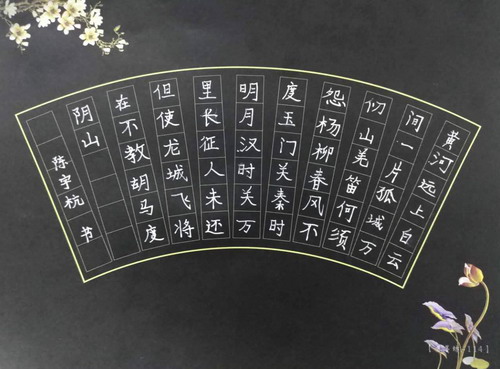 黄河远上白云
间一片孤城万
仞山羌笛何须
怨杨柳春风不
度玉门关秦时
明月汉时关万
里长征人未还
但使龙城飞将
在不教胡马度
阴山
陈宇杭 书